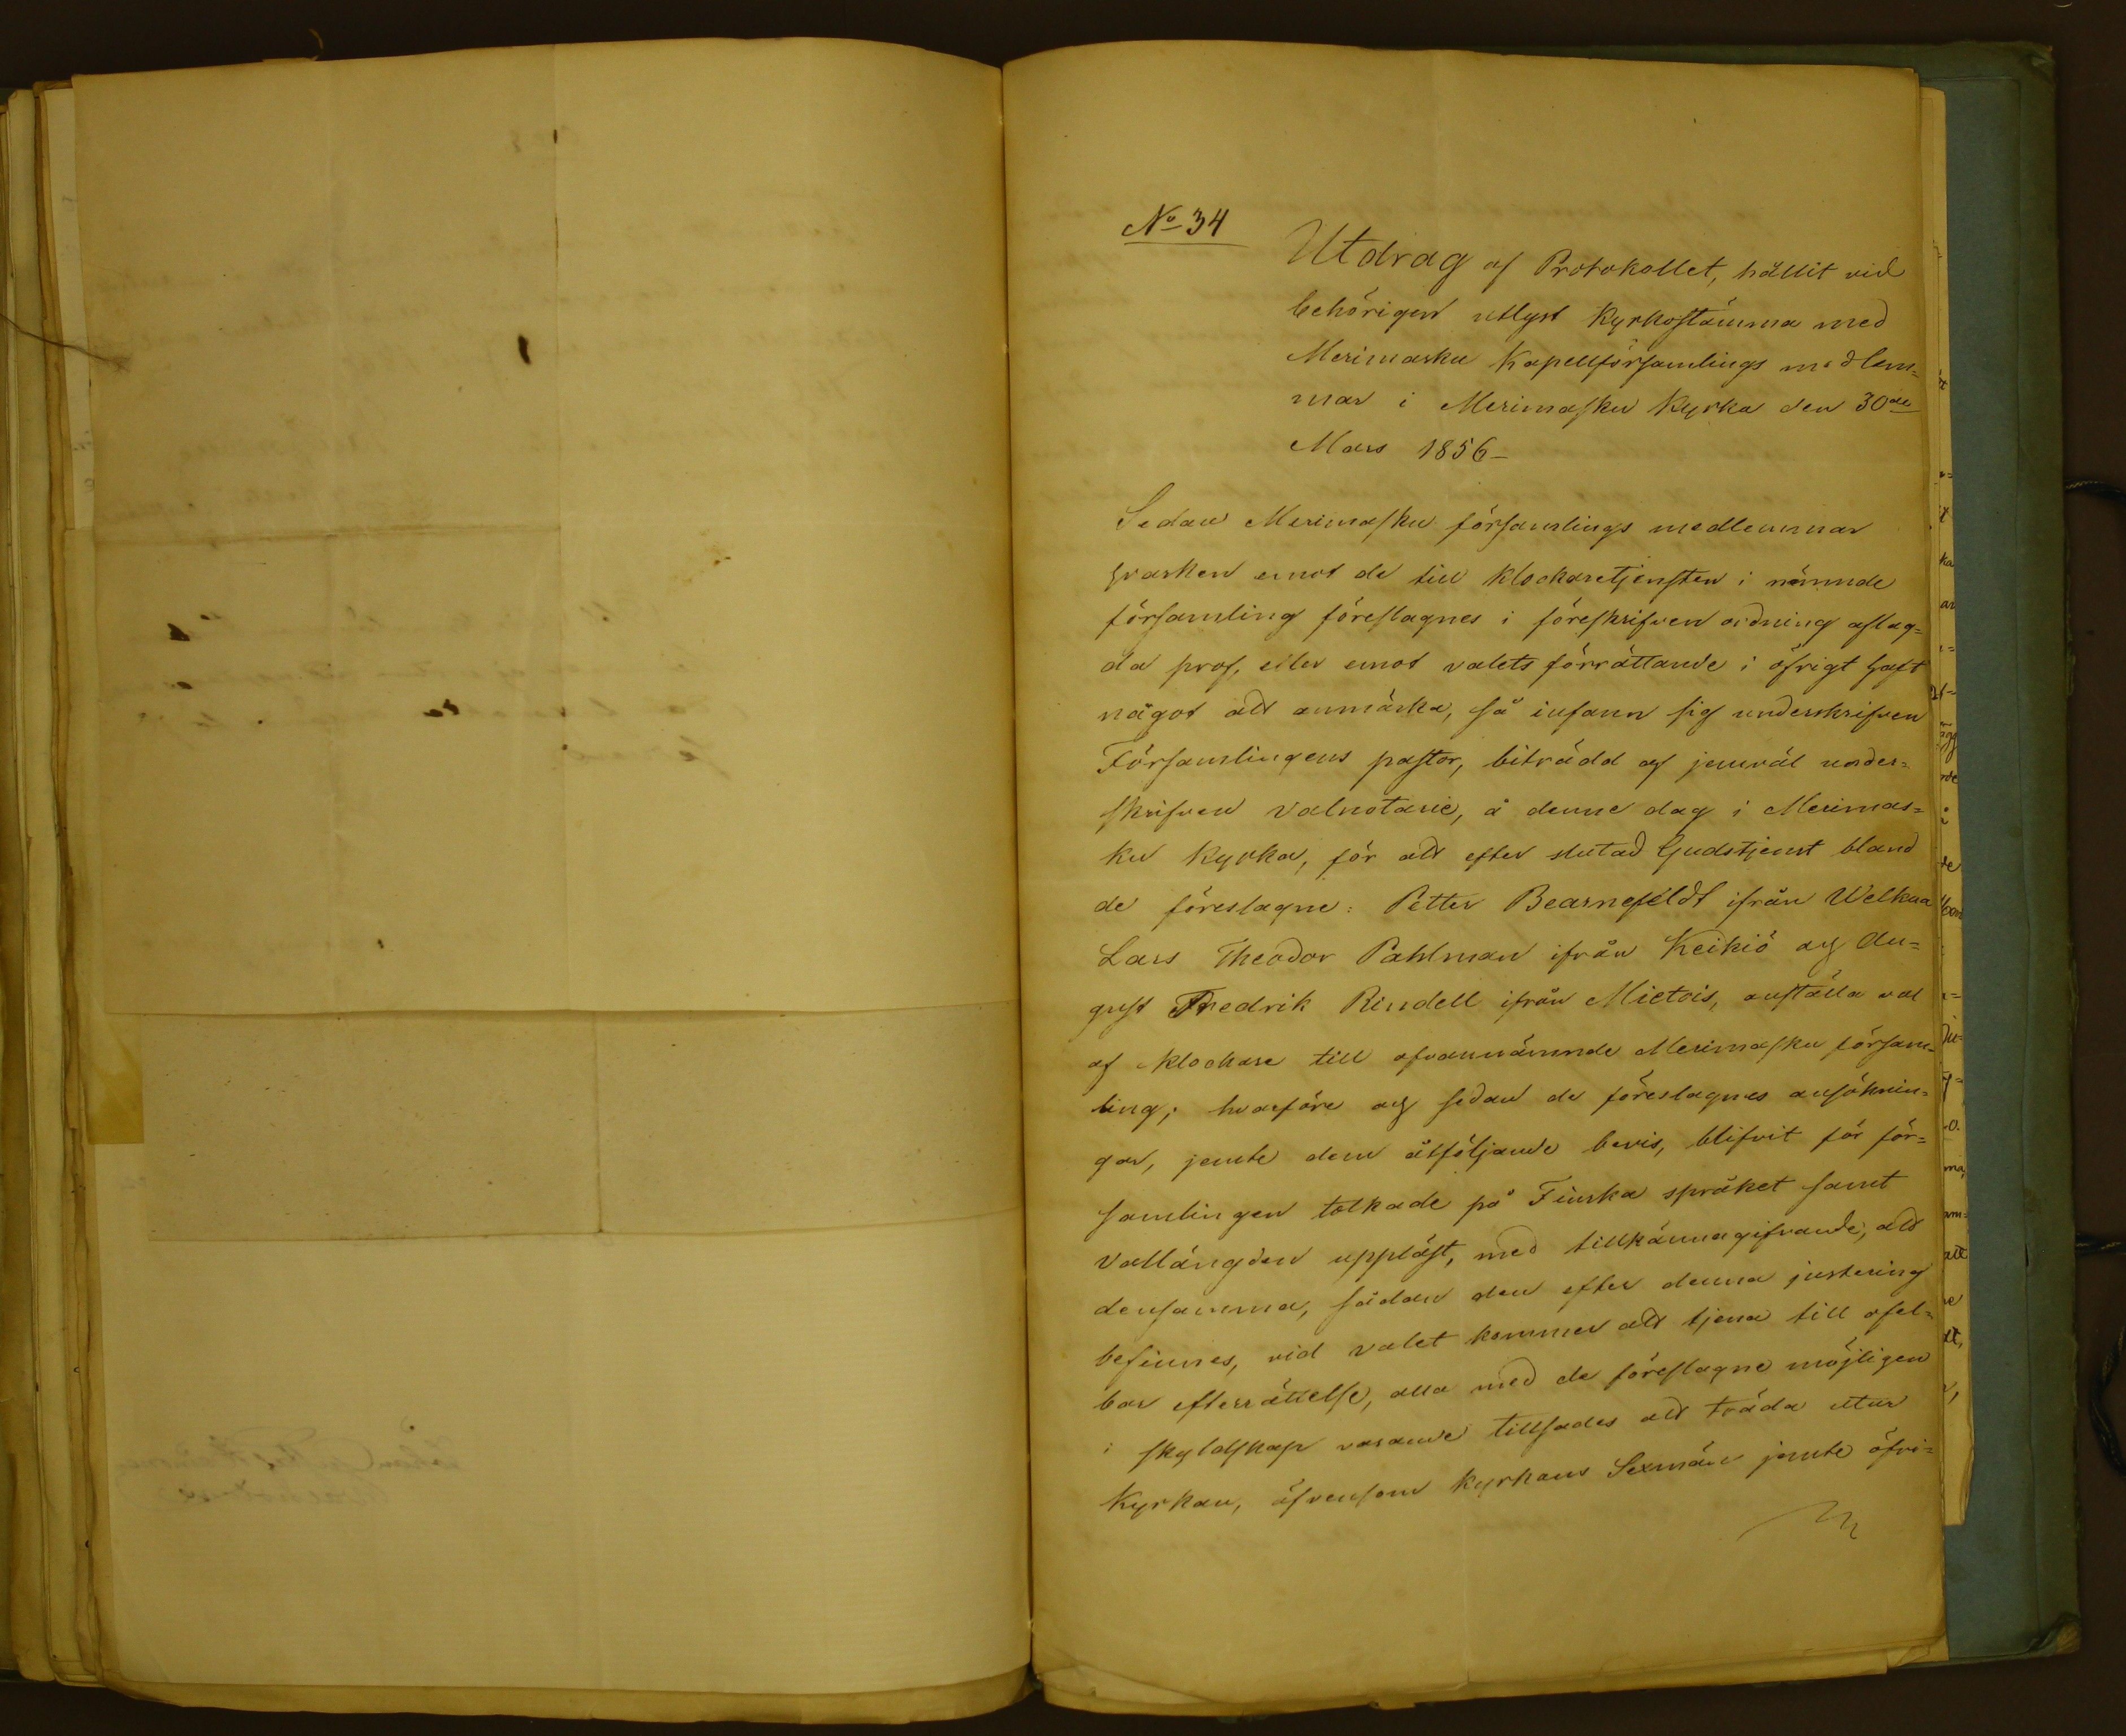 No 34
Utdrag af Protokollet, hållit vid
behörigen utlyst Kyrkostämma med
Merimasku Kapellförsamlings medlem=
mar i Merimasku Kyrka den 30de
Mars 1856–
Sedan Merimasku församlings medlemmar
hvarken emot de till klockaretjensten i nämnde
församling föreslagnes i föreskrifven ordning aflag=
da prof, eller emot valets förrättande i öfrigt haft
något att anmärka, så infann sig underskrifven
Församlingens pastor, biträdd af jemväl under=
skrifven valnotarie, å denne dag i Merimas=
ku Kyrka, för att efter slutad Gudstjenst bland
de föreslagne: Petter Bearnefeldt ifrån Welkua
Lars Theodor Pahlman ifrån Keikiö och Au=
gust Fredrik Rindell ifrån Mietois, anställa val
af klockare till ofvannämnde Merimasku försam=
ling; hvarföre och sedan de föreslagnes ansöknin=
gar, jemte dem åtföljande bevis, blifvit för för=
samlingen tolkade på Finska språket samt
Vallängden uppläst, med tillkännagifvande, att
densamma, sådan den efter denna justering
befinnes, vid valet kommer att tjena till ofel=
bar efterrättelse, alla med de föreslagne möjligen
i skyldskap varande tillsades att träda utur
Kyrkan, äfvensom Kyrkans Sexmän jemte öfri=